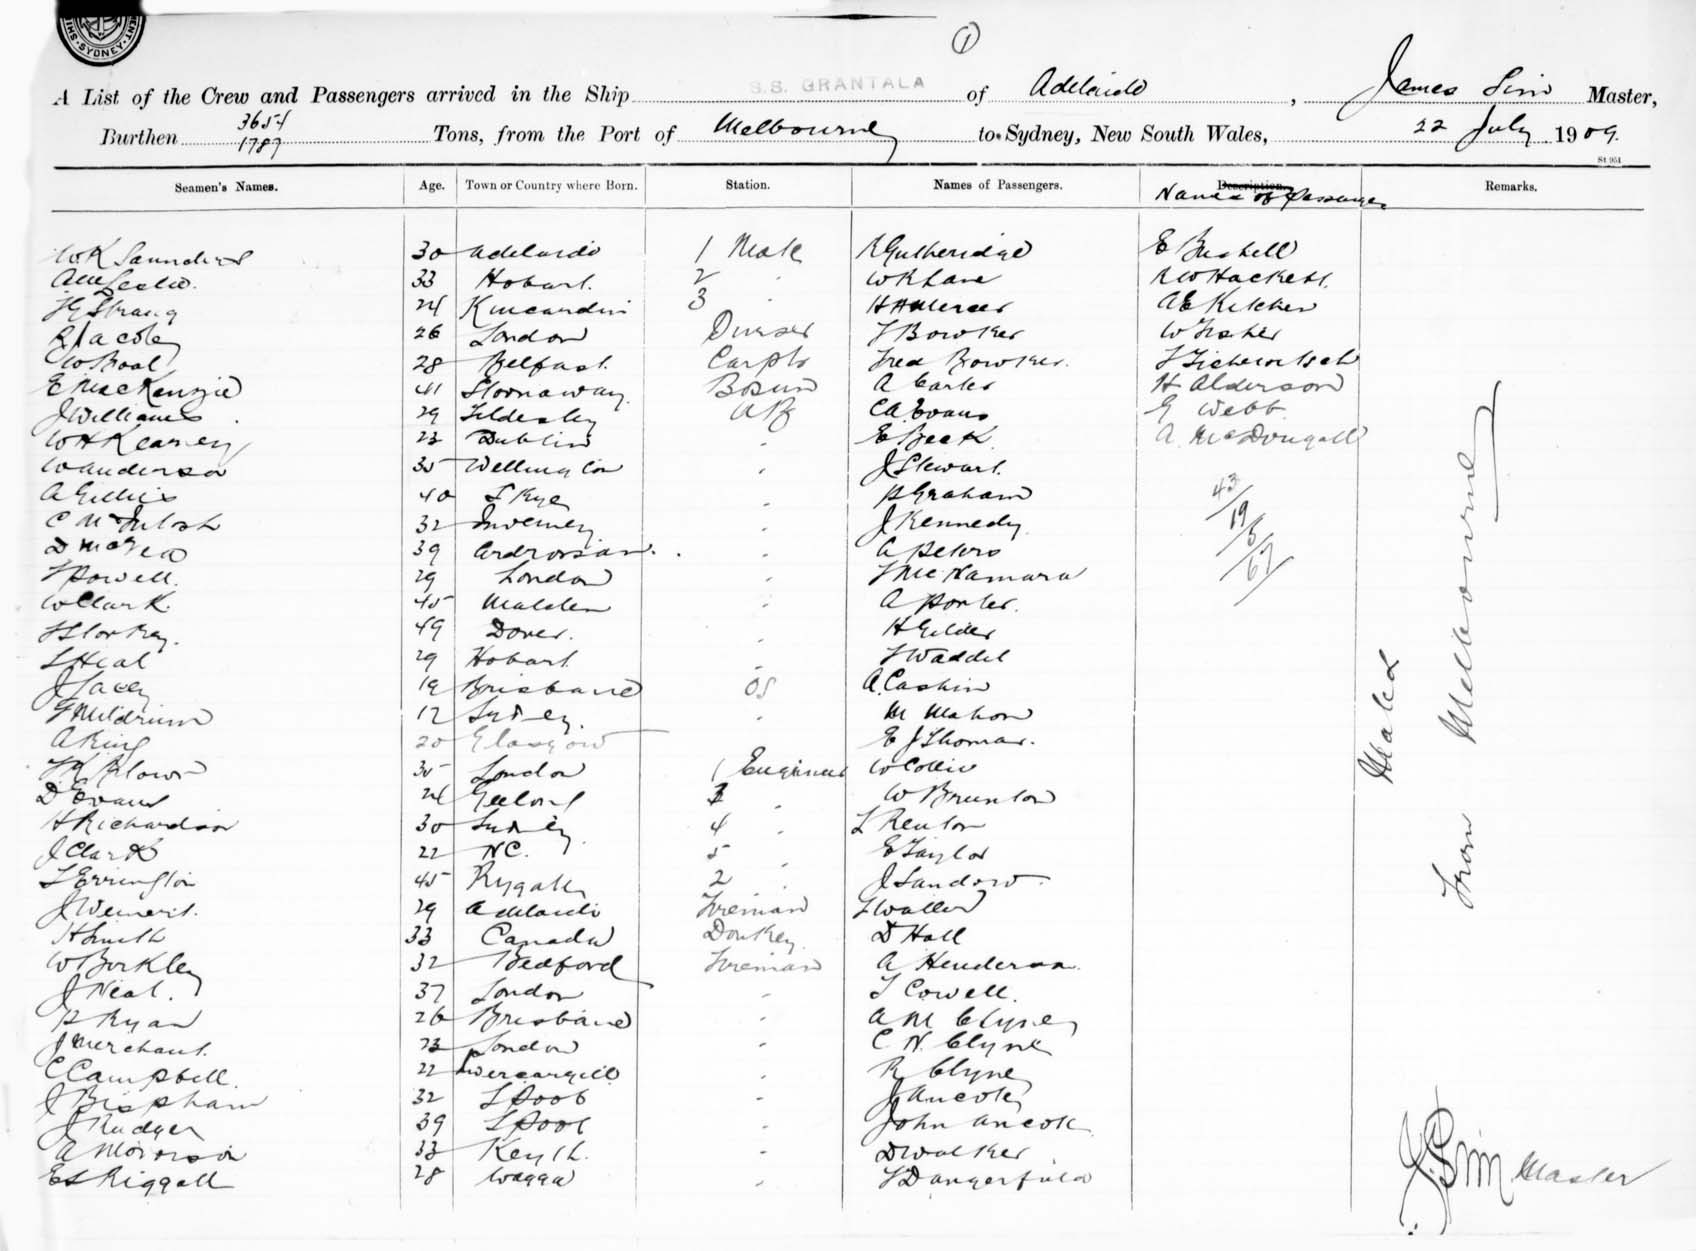 SYDNEY
1
A List of the Crew and Passengers arrived in the Ship S.S. GRANTALA of Adelaide, James Sim Master,
Burthen 3654 1787 Tons, from the Port of Melbourne to Sydney, New South Wales, 22 July 1909.
St 951
Seamen's Names. Age. Town or Country where Born. Station. Names of Passengers. Description. Names of Passengers Remarks.
W K Saunders 30 Adelaide 1 Mate R Gutheridge E Bushell
A M Leslie. 33 Hobart. 2 " W R Lane R W Hackett.
J G Strang 24 Kincardin 3 " H H Mercer A E Kitchen
R Jacobs 26 London J Bowker W Fisher
W Boal 28 Belfast. Carptr Fred Bowker.
E MacKenzie 41 Stornaway Bosun A Carter H Alderson
J Williams 29 Tildesley AB C A Evans G Webb
W H Kearney 23 Dublin " E Beck A. McDougall
W Anderson 35 Wellington " J Stewart.
A Gillies 40 Skye " P Graham 43
C McIntosh 32 Inverney " J Kennedy 19
D 39 Ardrossan. " A Peters 5
T Powell. 29 London " J McNamara 67
W Clark 45 Malden " A Porter.
49 Dover. " H Gilder
S Heal 29 Hobart " J Waddel
J Lacey 19 Brisbane OS A. Cashin
G Meldrum 17 Sydney. " M Mahon
A King 20 Glasgow E J Thomas.
35 London 1 Engineer W Collie
D Evans 24 Geelong 3 " W Brunton
H Richardson 30 Sydney 4 " L Renton
J Clark 22 NC. 5 " E Taylor
T Errington 45 2 J Sandow.
J Weinert. 29 Adelaide Fireman J Waller
H Smith 33 Canada Donkey D Hall
W Borkley 32 Bedford Fireman A Henderson.
J Neal. 37 London " T Cowell.
P Ryan 26 Brisbane " A M Clyne
J Merchant. 23 London " C N Clyne
C Campbell. 22 Invercargill " R Clyne
J Bispham 32 L Pool " J Ancok
J Rudger 39 L Pool " John Ancok
A Morrison 33 Keyth. " D Walker
E S Riggall 28 Wagga " J Dangerfield
Males From Melbourne
J. Sim Master